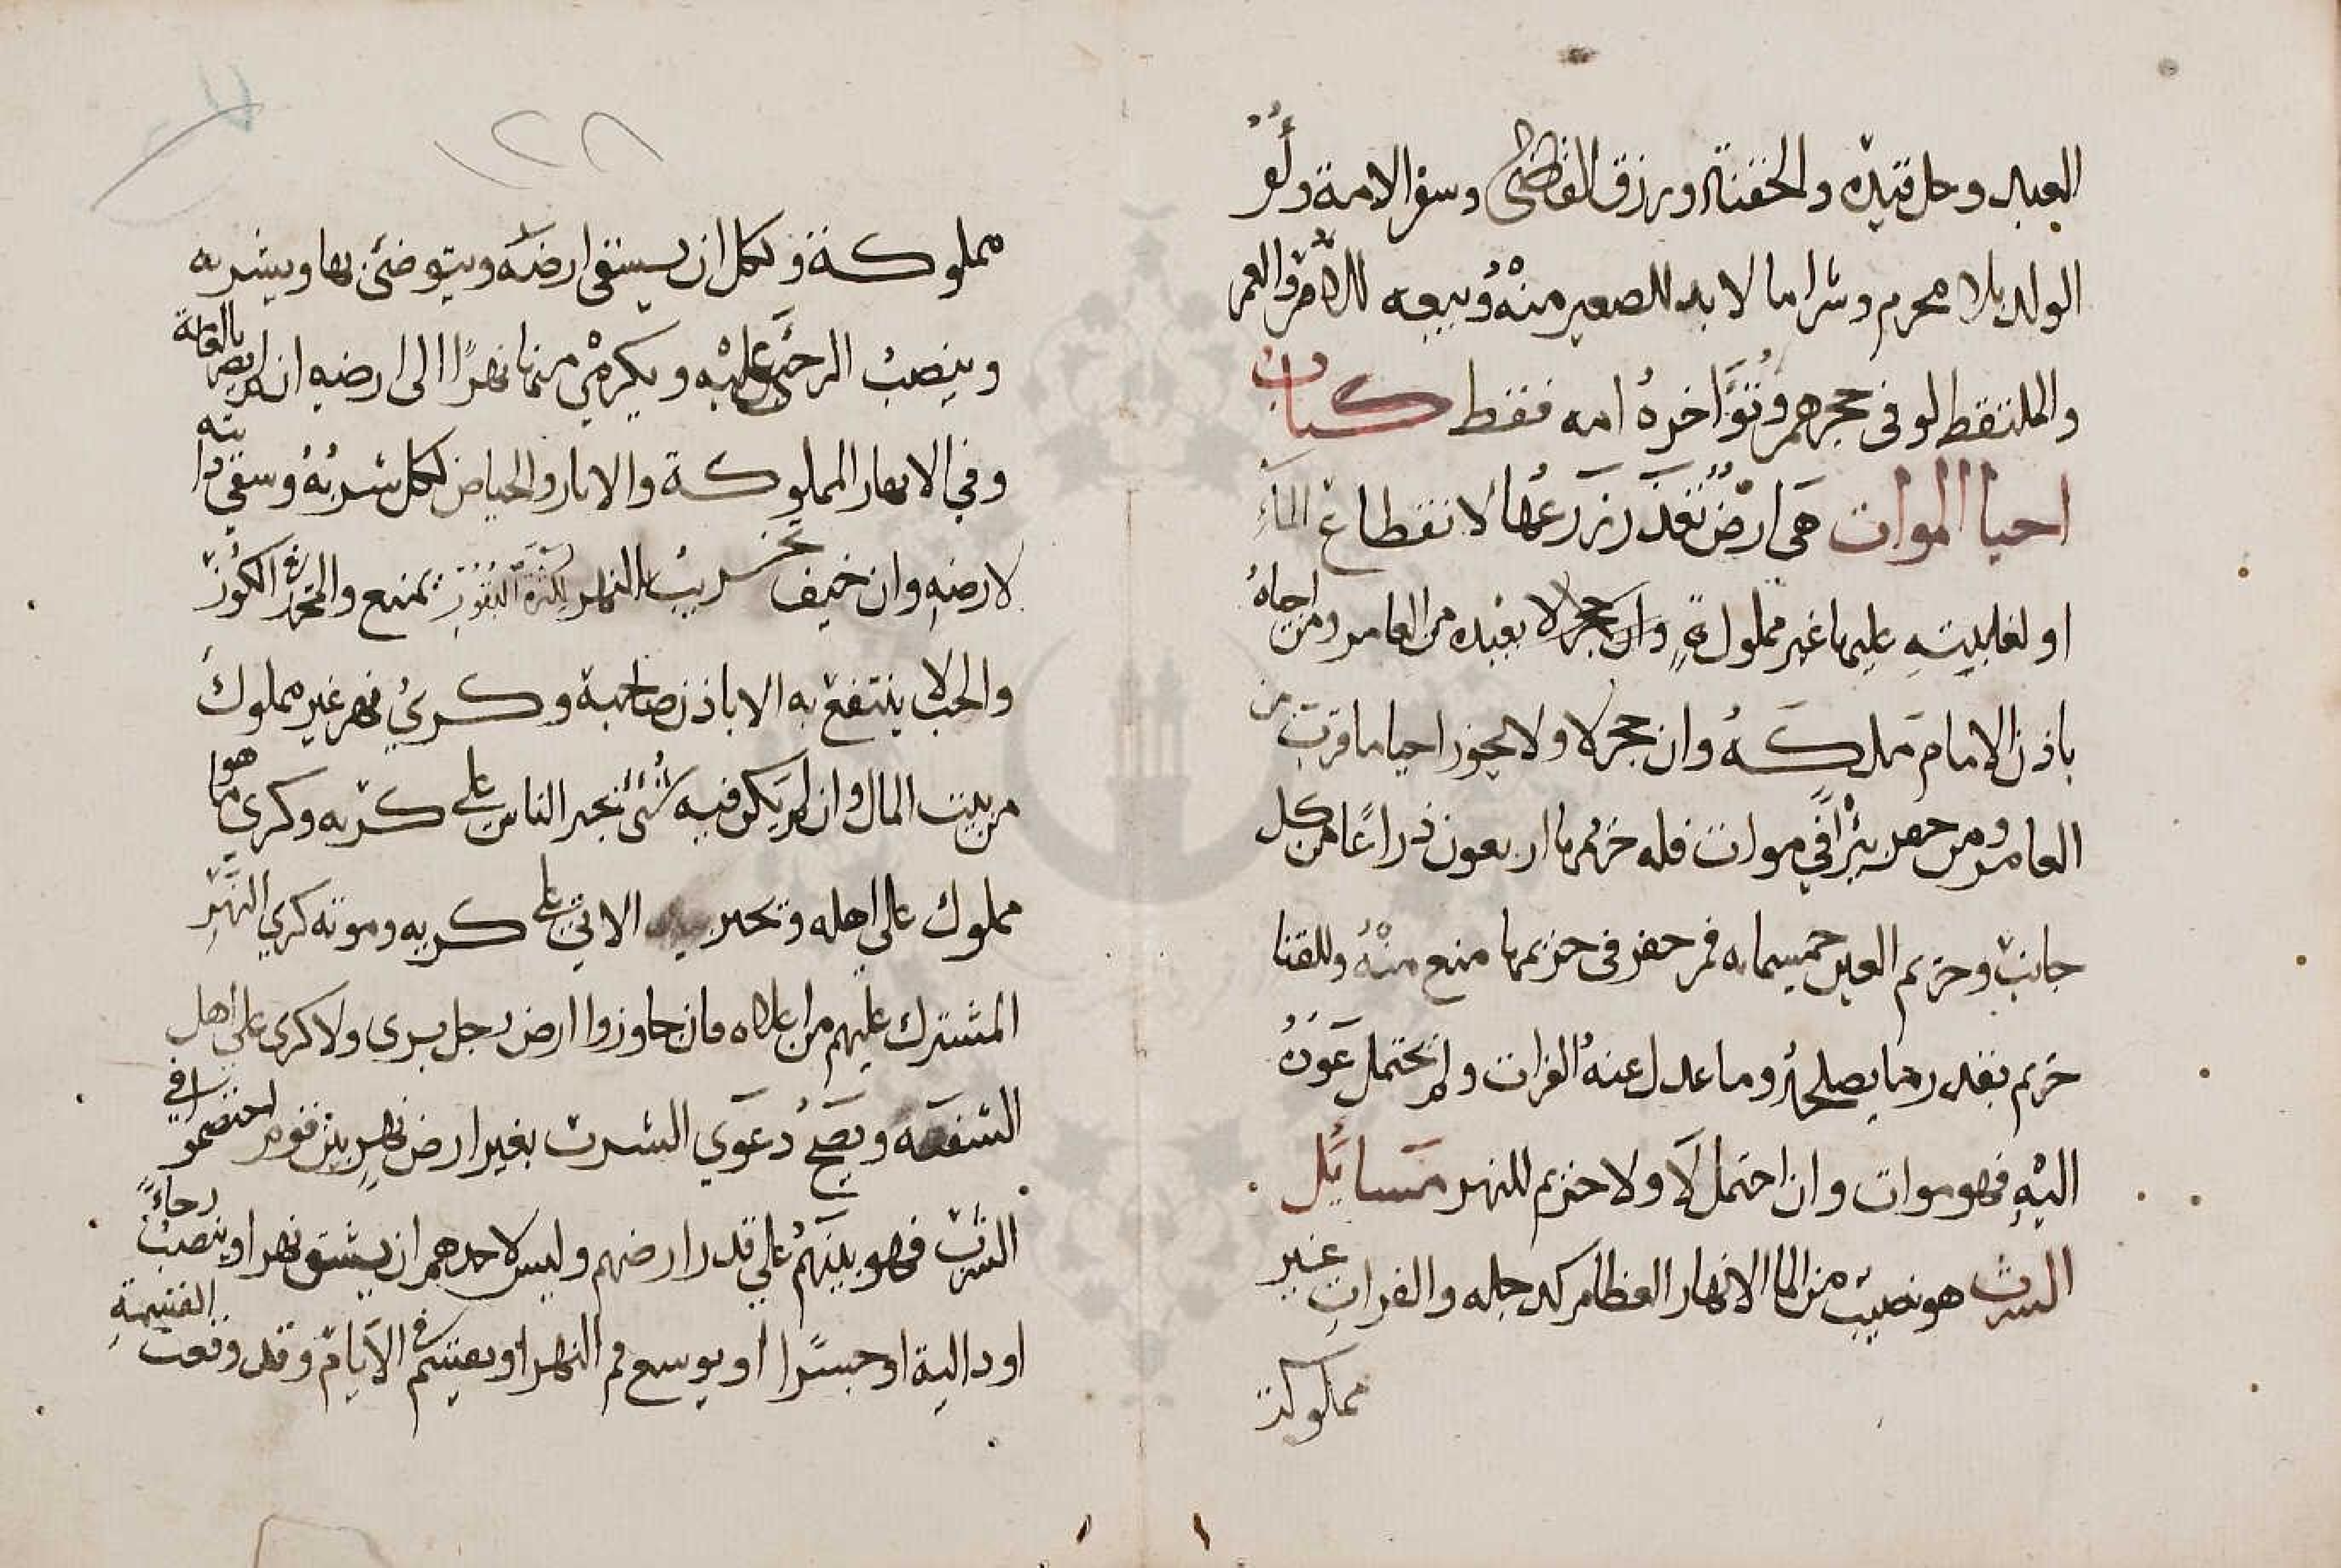 العبد وحل قيده والحقنة ورزق القاضي وسفر الامة وام
الولد بلا محرم وشرا ما لا بد للصغير منه وبيعه للام والعم
والملتقط لو في حجرهم وتؤاخره امه فقط كتاب
احيا الموات هي ارض تعذر زرعها لانقطاع الماء
او لغلبته عليها غير مملوكة بعيدة من العامر ومن احياه
باذن الامام ملكه وان حجر لا ولا يجوز احيا ما قرب من
العامر ومن حفر بئرا في موات فله حريمها اربعون ذراعا من كل
جانب وحريم العين خمسمايه فمن حفر في حريمها منع منه وللقنا
حريم بقدر ما يصلحه وما عدل عنه الفرات ولم يحتمل عوده
اليه فهو موات وان احتمل لا ولا حريم للنهر مسايل
الشرب هو نصيب من الما الانهار العظام كدجله والفرات غير
مملوكة
١٢٨
مملوكة ولكل ان يستقي ارضه ويتوضئ بها ويشربه
وينصب الرحى عليه ويكري منها نهرا الى ارضه ان لم يضر بالعامة
وفي الانهار المملوكة والابار والحياض لكل شربه وسقي دابته
لا ارضه وان خيف تخريب النهر لكثرة البقور يمنع والمحرز في الكوز
والحب لا ينتفع به الا باذن صاحبه وكري نهر غير مملوك
من بيت المال وان لم يكن فيه شئ يجبر الناس على كريه وكري ما هو
مملوك على اهله ويجبر الابي على كريه ومونة كري النهر
المشترك عليهم من اعلاه فان جاوزوا ارض رجل برى ولا كرى على اهل
الشفه ويصح دعوى الشرب بغير ارض نهر بين قوم اختصموا في
الشرب فهو بينهم على قدر ارضهم وليس لاحدهم ان يشق نهرا او ينصب رحاء
او دالية او جسرا او يوسع فم النهر او يقسم في الايام وقد وقعت القسمة